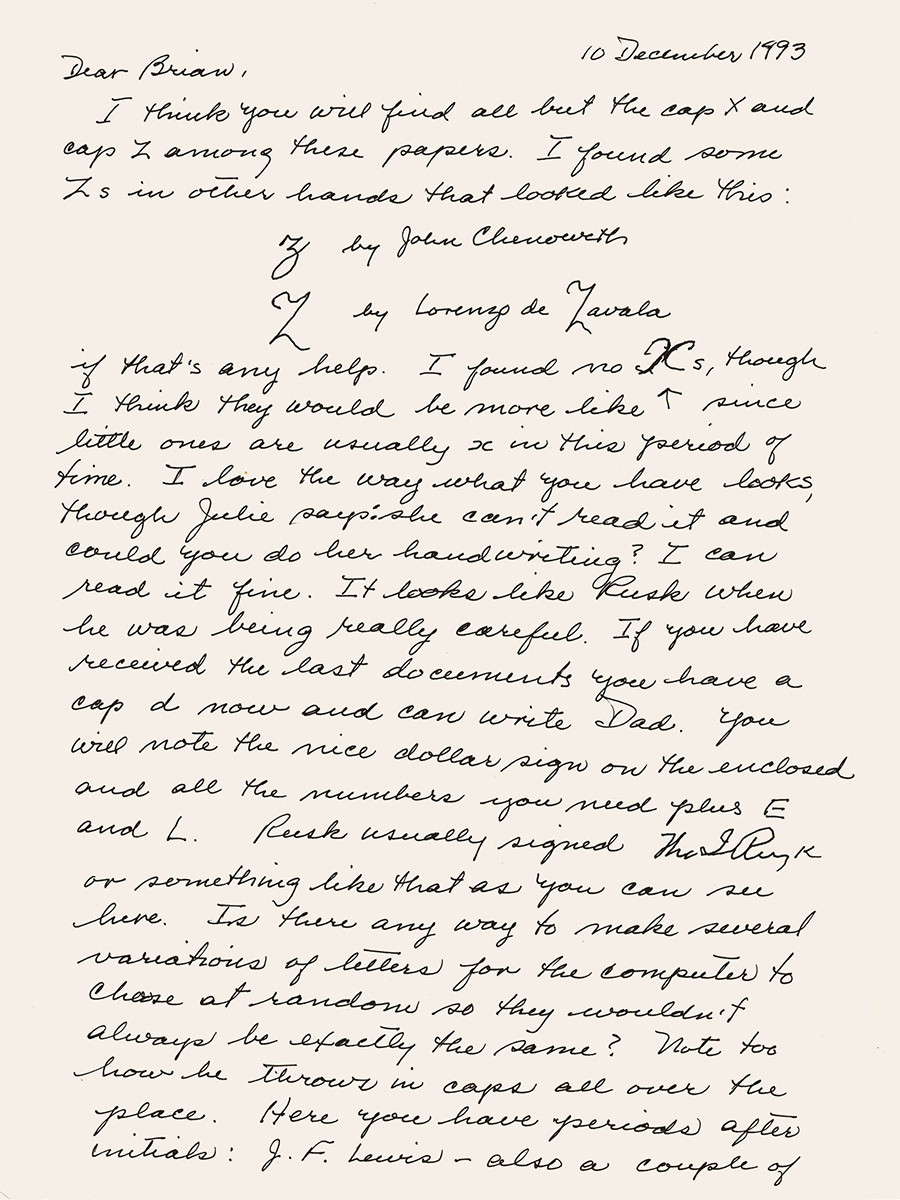 10 December 1993
Dear Brian,
I think you will find all but the cap X and
cap Z among these papers. I found some
Zs in other hands that looked like this:
Z by John Chenoweth
Z by Lorenzo de Zavala
if that's any help. I found no Xs, though
I think they would be more like ↑ since
little ones are usually x in this period of
time. I love the way what you have looks,
though Julie says she can't read it and
could you do her handwriting? I can
read it fine. It looks like Rusk when
he was being really careful. If you have
received the last documents you have a
cap d now and can write Dad. You
will note the nice dollar sign on the enclosed
and all the numbers you need plus E
and L. Rusk usually signed Tho J Rusk
or something like that as you can see
here. Is there any way to make several
variations of letters for the computer to
chose at random so they wouldn't
always be exactly the same? Note too
how he throws in caps all over the
place. Here you have periods after
initials: J. F. Lewis – also a couple of